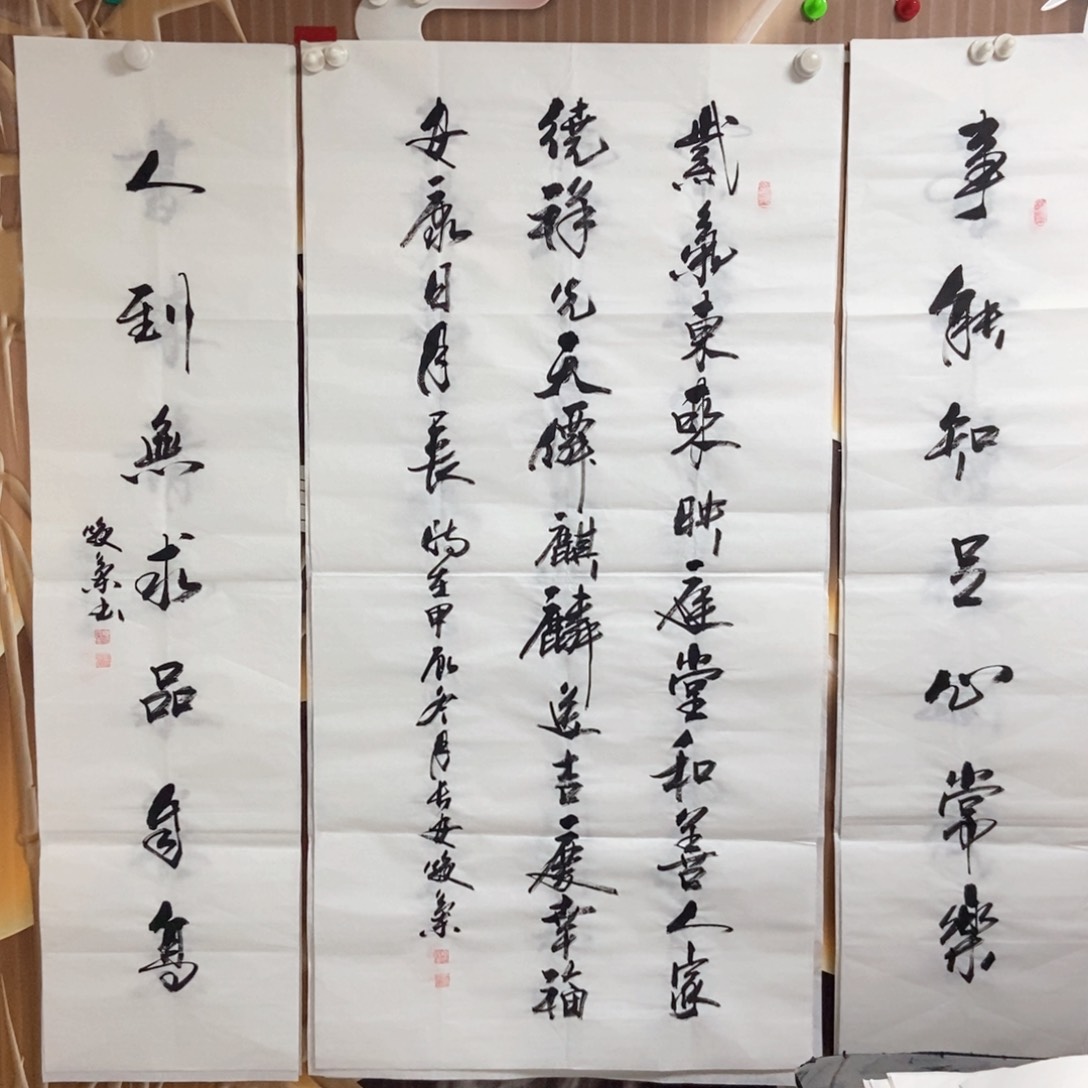 事能知足心常樂
紫氣東來映庭堂和善人家
繞祥光天僊麒麟送吉慶幸福
安康日月長 時在甲辰冬月长安
人到無求品自高
书